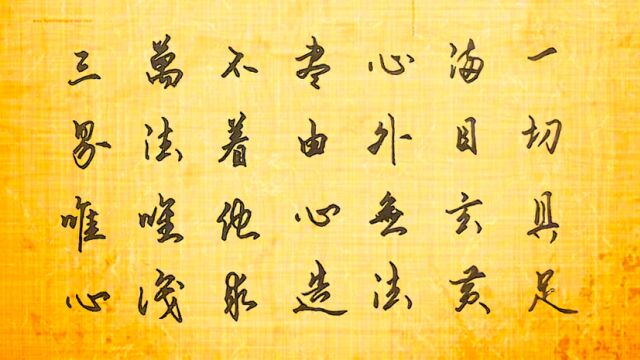 三界唯心
萬法唯識
不着他求
盡由心造
心外無法
滿目玄黄
一切具足